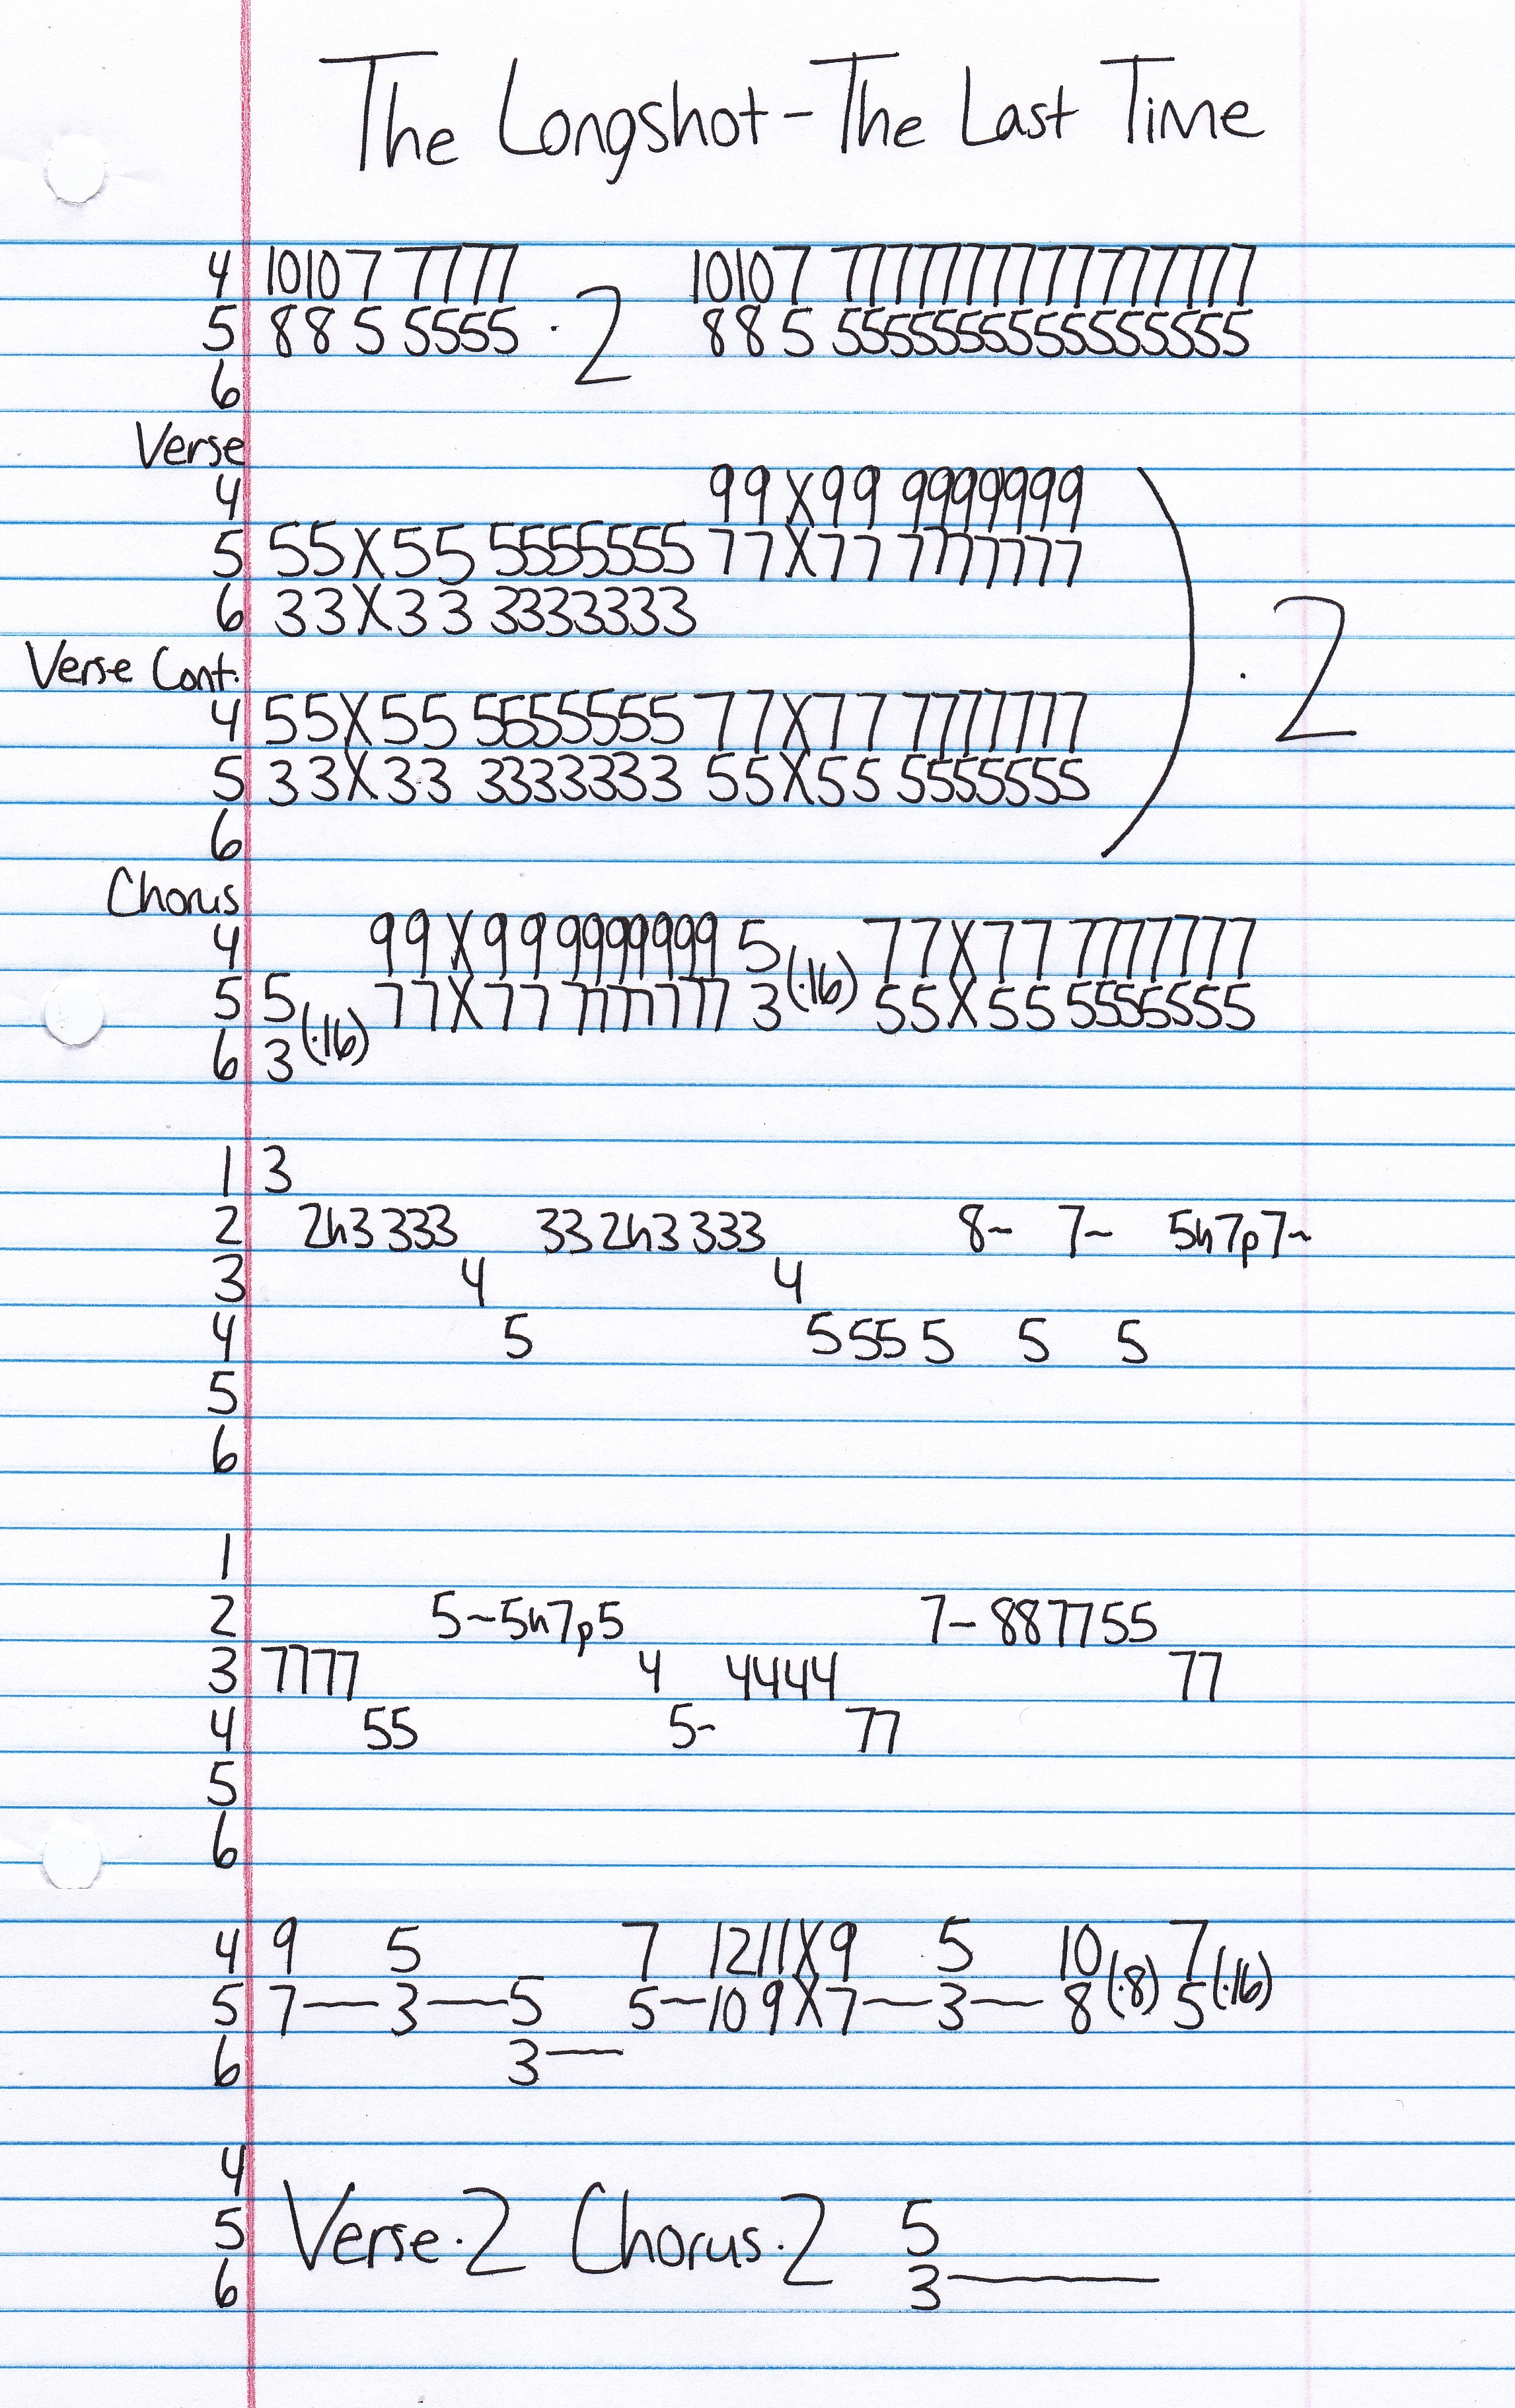 The Longshot - The Last Time
4 10107 7777 10107 777777777777777
5 885 5555 ·2 885 555555555555555
6
Verse
4 99X99 9999999
5 55X55 5555555 77X77 7777777
6 33X33 3333333
·2
Verse Cont.
4 55X55 5555555 77X77 7777777
5 33X33 3333333 55X55 5555555
6
Chorus
4 99X99 9999999 5 77X77 7777777
5 5 77X77 7777777 3 (·16) 55X55 5555555
6 3 (·16)
1 3
2 2h3 333 33 2h3 333 8~ 7~ 5h7p7~
3 4 4
4 5 5 55 5 5 5
5
6
1
2 5~5h7p5 7~ 887755
3 7777 4 4444 77
4 55 5~ 77
5
6
4 9 5 7 1211X9 5 10 7
5 7—3—5 5—109X7—3—8(·8) 5(·16)
6 3—
4
5 Verse·2 Chorus·2 5
6 3—